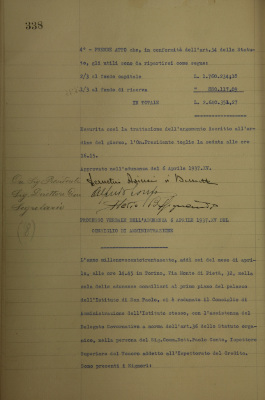 338
4° - PRENDE ATTO che, in conformità dell'art.34 dello Statu-
to, gli utili sono da ripartirsi come segue:
2/3 al fondo capitale
1/3 al fondo di riserva
IN TOTALE
Esaurita così la trattazione dell'argomento inscritto all'or-
dine del giorno, l'On.Presidente toglie la seduta alle ore
16.45.
Approvato nell'adunanza del 6 aprile 1937.XV.
Segretario
(8)
PROCESSO VERBALE DELL'ADUNANZA 6 APRILE 1937.XV DEL
CONSIGLIO DI AMMINISTRAZIONE
L'anno millenovecentotrentasette, addì sei del mese di apri-
le, alle ore 16.45 in Torino, Via Monte di Pietà, 32, nella
sala delle adunanze consiliari al primo piano del palazzo
dell'Istituto di San Paolo, si è radunato il Consiglio di
Amministrazione dell'Istituto stesso, con l'assistenza del
Delegato Governativo a norma dell'art.36 dello Statuto
nella persona del Ispettore
Superiore del Tesoro addetto all'Ispettorato del Credito.
Sono presenti i Signori: